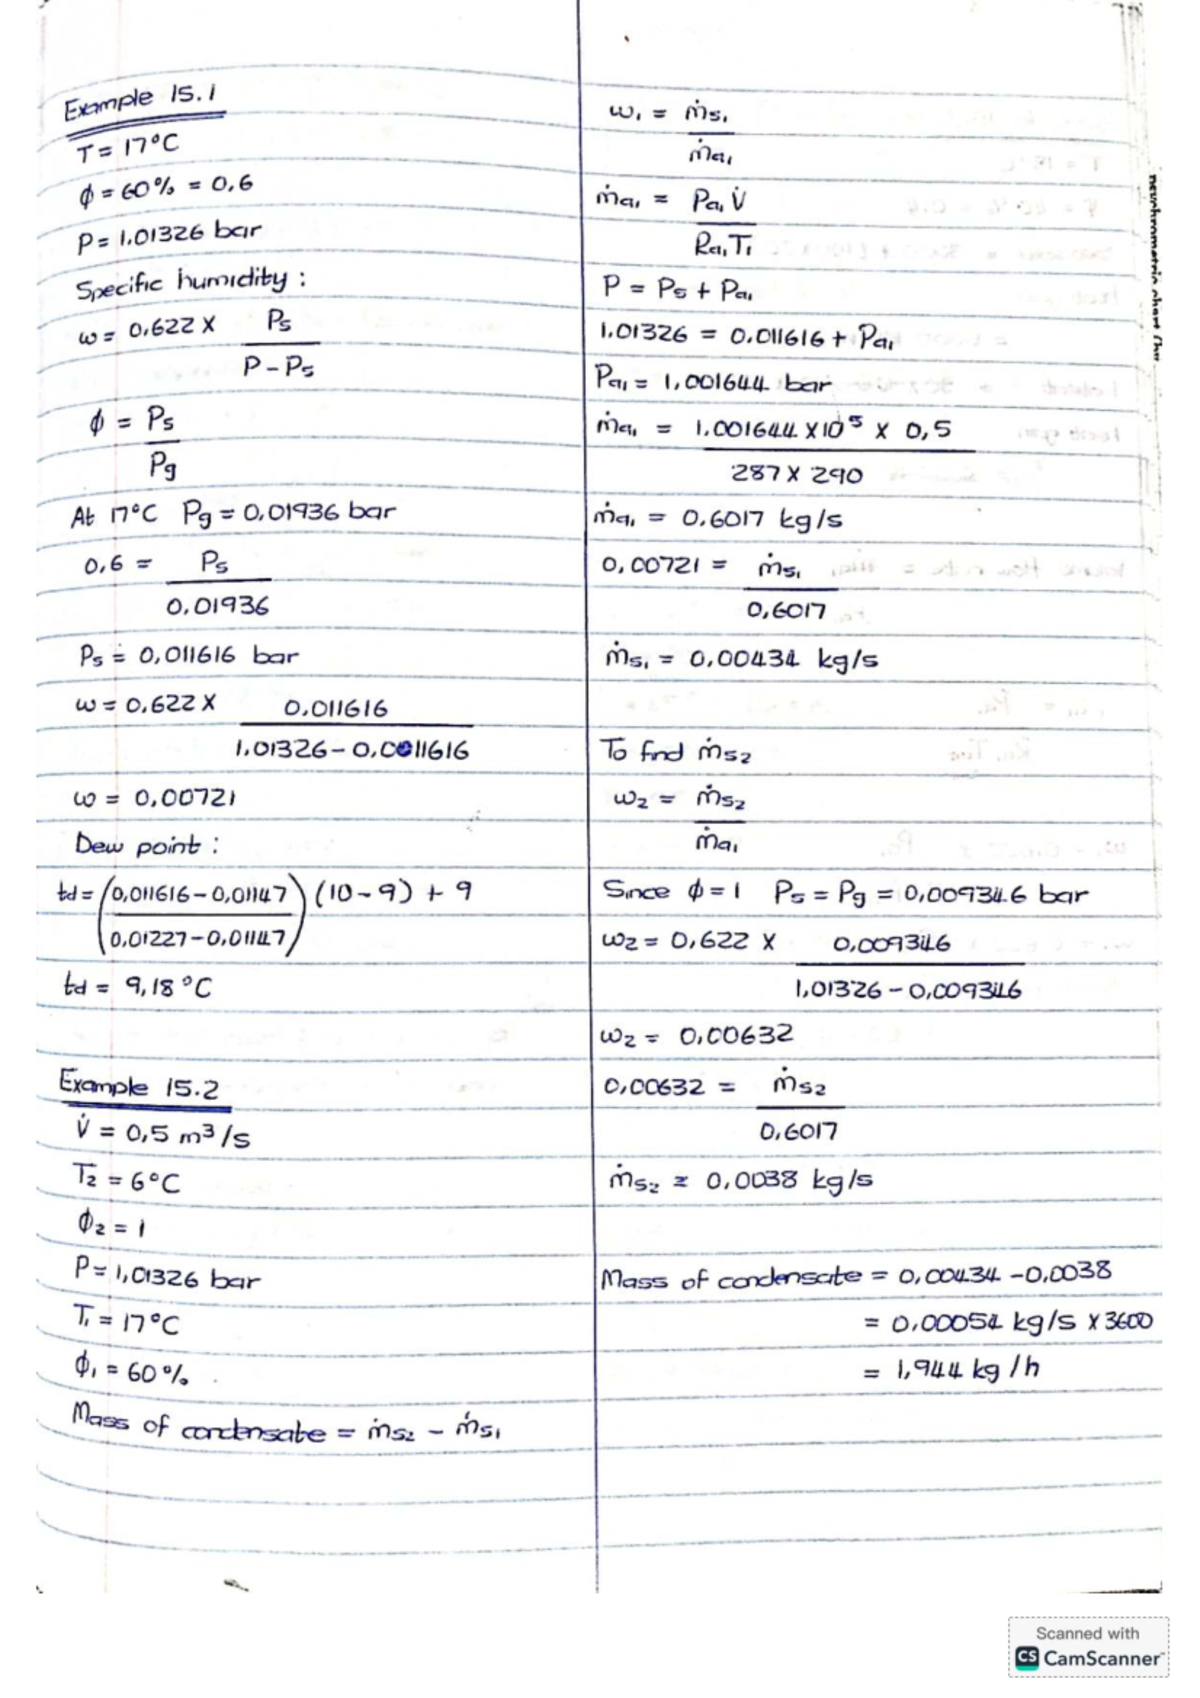 Example 15.1
T = 17°C
ϕ = 60% = 0,6
P = 1.01326 bar
Specific humidity :
ω = 0.622 x Ps
P - Ps
ϕ = Ps
Pg
At 17°C Pg = 0,01936 bar
0,6 = Ps
0,01936
Ps = 0,011616 bar
ω = 0,622 x 0,011616
1,01326 - 0,0011616
ω = 0,00721
Dew point :
td = (0,011616 - 0,01147) (10 - 9) + 9
(0,01227 - 0,01147)
td = 9,18°C
Example 15.2
V̇ = 0,5 m³/s
T2 = 6°C
ϕ2 = 1
P = 1,01326 bar
T1 = 17°C
ϕ1 = 60%
Mass of condensate = ṁs2 - ṁs1
ω1 = ṁs1
ṁa1
ṁa1 = Pa1 V̇
Ra1 T1
P = Ps + Pa1
1.01326 = 0.011616 + Pa1
Pa1 = 1,001644 bar
ṁa1 = 1.001644 x 10⁵ x 0,5
287 x 290
ṁa1 = 0,6017 kg/s
0,00721 = ṁs1
0,6017
ṁs1 = 0,00434 kg/s
To find ṁs2
ω2 = ṁs2
ṁa1
Since ϕ = 1 Ps = Pg = 0,009346 bar
ω2 = 0,622 x 0,009346
1,01326 - 0,009346
ω2 = 0,00632
0,00632 = ṁs2
0,6017
ṁs2 = 0,0038 kg/s
Mass of condensate = 0,00434 - 0,0038
= 0,00054 kg/s x 3600
= 1,944 kg/h
Scanned with
CS CamScanner